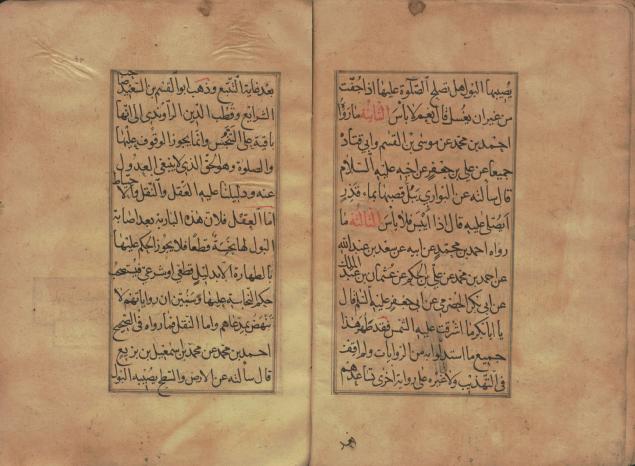 يصيبها البول هل تصلح الصلوة عليها اذا جفت
من غير ان يغسل قال نعم لا باس الثانية ما رواه
احمد بن محمد عن موسى بن القسم وابي قتادة
جميعا عن علي بن جعفر عن اخيه عليه السلام
قال سالته عن البواري يبل قصبها بماء قذر
ايصلى عليه قال اذا يبس فلا باس الثالثة ما
رواه احمد بن محمد عن ابيه عن سعد بن عبد الله
عن احمد بن محمد عن علي بن الحكم عن عثمان بن عبد الملك
عن ابي بكر الحضرمي عن ابي جعفر عليه السلام قال
يا ابا بكر ما اشرقت عليه الشمس فقد طهر هذا
جميع ما استدلوا به من الروايات ولم اقف
في التهذيب ولا غيره على رواية اخرى تساعدهم
بعد
بعد غاية التتبع وذهب ابو القسم بن السعيد صاحب
الشرايع وقطب الدين الراوندي الى انها
باقية على التنجس وانما يجوز الوقوف عليها
والصلوة وهو الحق الذي لا ينبغي العدول
عنه ودليلنا عليه العقل والنقل والاحتياط
اما العقل فلان هذه البارية بعد اصابة
البول لها نجسة قطعا فلا يجوز الحكم عليها
بالطهارة الا بدليل قطعي او شرعي فيستصحب
حكم النجاسة عليها وسنبين ان رواياتهم لا
تنهض بمدعاهم واما النقل فما رواه في الصحيح
احمد بن محمد عن محمد بن اسمعيل بن بزيع
قال سالته عن الارض والسطح يصيبه البول